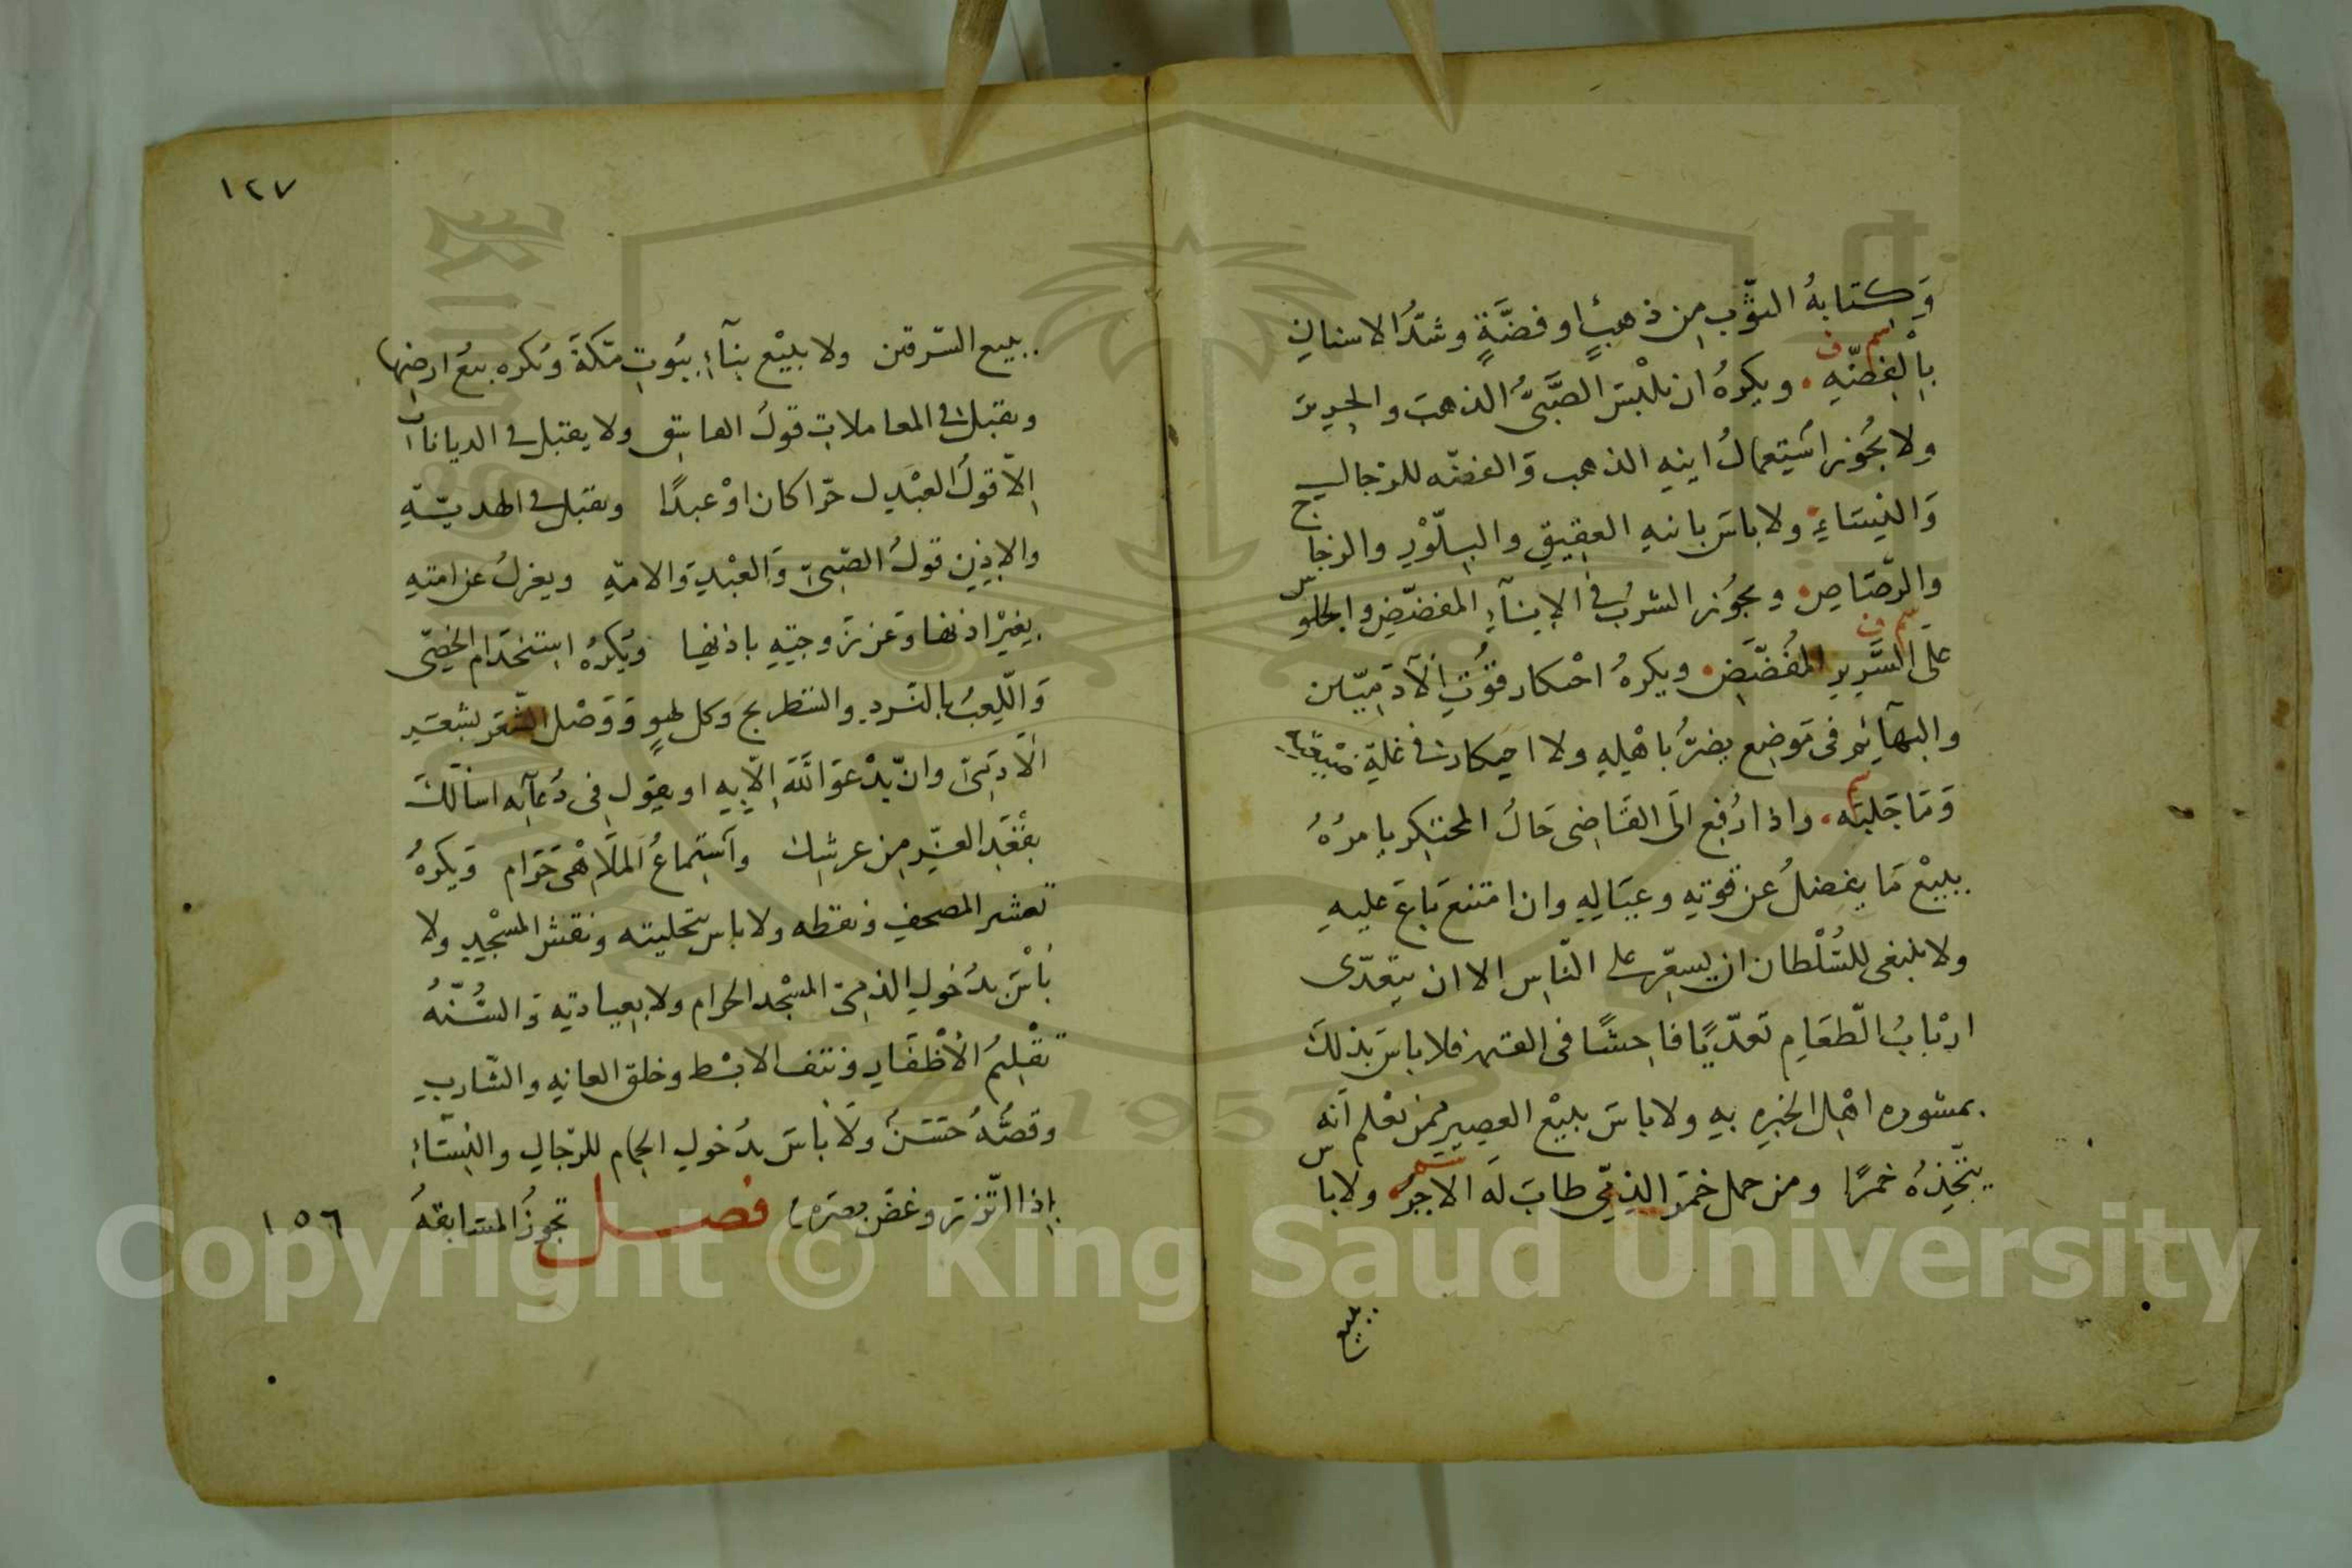 وَكتَابةُ الثّوْب مِن ذهبٍ او فضَّةٍ وشَدُّ الاسنانِ
سم ف
بِالْفِضّةِ ويكرهُ ان يلْبَسَ الصَّبيُّ الذهبَ والحرِيرَ
ولا يجُوز اسْتِعمالُ انيه الذهب وَالفضّه للرّجالِ
وَالنِسَاءِ ولا باسَ بانيهِ العقِيقِ والبِلّوْرِ والزجاج
والرّصَاصِ ويجوُز الشربُ في الإِنآءِ المفضّضِ والجلوس
سم ف
على السَّرِيرِ المُفُضّضِ ويكرهُ احْتكار قُوْتِ الآدَمِيّين
والبهآئِمِ فى مَوضِعٍ يضرُّ باهْلِهِ ولا احتكارَ فى غلّةِ ضيْعَتِهِ
سم
وَمَا جَلبَه واذا رُفِع الَى القَاضِى حَالُ المحتكِر يامرُهُ
ببيْع مَا يفضلُ عن قُوتِهِ وعيَالِهِ وان امتنعَ بَاعَ عليهِ
ولا ينبغى للسُّلْطان ان يسعّر على النّاسِ الا ان يتعَدّى
ارْبابُ الطّعَامِ تَعدّيًا فاحِشًا فى القيمه فلا باسَ بذلكَ
بمشوره اهْلِ الخبره بهِ ولا باسَ ببيْع العصِيرِ ممن يعْلم انّه
سم
يتّخِذهُ خمرًا ومن حمل خمَر الذِمِّي طابَ لَه الاجرُ ولا باس
ببيع
١٢٧
ببيع السّرقين ولا ببيْع بنآءِ بيُوتِ مكّةَ وَيكره بيعُ ارضِها
ويقبل فى المعاملاتِ قولُ الفاسِق ولا يقبل فى الديانات
اِلاّ قولُ العَدْلِ حرّا كان اوْ عبدًا ويقبل فى الهديّةِ
والاِذنِ قولُ الصّبىّ وَالعبْدِ وَالامةِ ويعزلُ عن امتِهِ
بغيْر اذنها وَعن زَوجتِهِ باذنها وَيُكرهُ استخدَام الخصِىّ
وَاللّعِبُ بالنّردِ والشطرنج وَكل لهوٍ وَوَصْل الشّعَر بشعَر
الآدَمىّ وانْ يدْعوَ اللّهَ اِلاّ بِهِ او يقولَ فى دُعآئِه اسْألكَ
بمَقْعَدِ العِزّ مِن عرشِكَ وآسْتِماعُ المَلآهْى حَرَام وَيكرهُ
تعشير المصحفِ ونقطه ولا باس بتحليته ونقش المسْجِدِ ولا
بَاسَْ بدُخولِ الذمّىّ المسْجد الحرام ولا بعِيادتِهِ وَالسُنّهُ
تقْلِيمُ الأظْفَارِ ونتف الابْط وحلق العانهِ والشّاربِ
وقصُّهُ حسَنُ ولا باسَ بدُخولِ الحمام للرّجالِ والنِسَاءِ
اِذا اتّزرَ وغضّ بصَره فصل تجوزُ المسَابقهُ
١٥٦
Copyright © King Saud University
1957